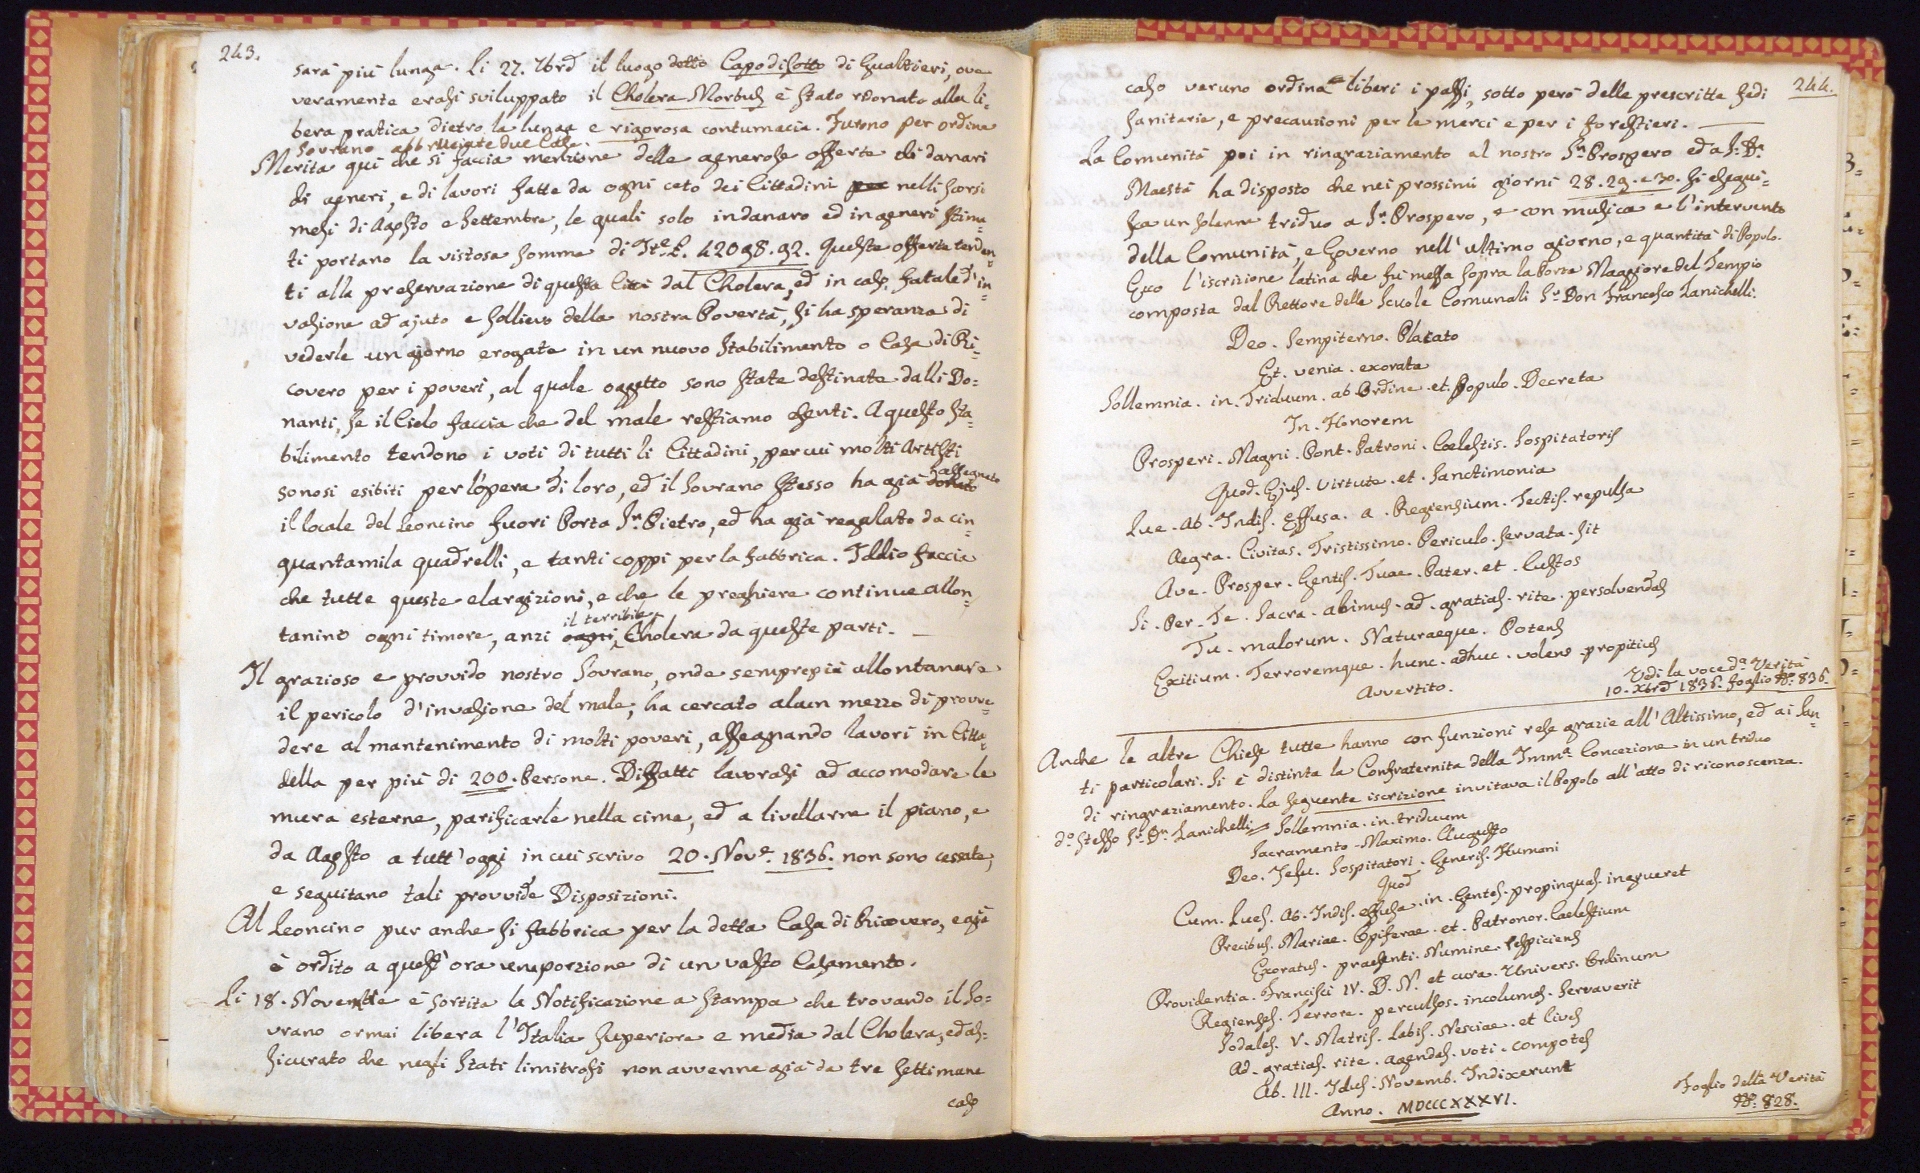 243.
sarà più lunga. Li 27. 7brẽ il luogo detto Capodisotto di Gualtieri, ove
veramente erasi sviluppato il Cholera Morbus è stato ridonato alla li-
bera pratica dietro la lunga e rigorosa contumacia. Furono per ordine
Sovrano abbruciate due Case.
Merita quì che si faccia menzione delle generose offerte di danari
di generi, e di lavori fatte da ogni ceto dei Cittadini per nelli scorsi
mesi di Agosto e Settembre, le quali solo in danaro ed in generi stima-
ti portano la vistosa somma di It.e £. 42098.92. Queste offerte tenden-
ti alla preservazione di questa Città dal Cholera, ed in caso fatale d'in-
vasione ad ajuto e sollievo della nostra Povertà, si ha speranza di
vederle un giorno erogate in un nuovo Stabilimento o Casa di Ri-
covero per i poveri, al quale oggetto sono state destinate dalli Do-
nanti, se il Cielo faccia che del male restiamo esenti. A questo Sta-
bilimento tendono i voti di tutti li Cittadini, per cui molti Artisti
sonosi esibiti per l'opera di loro, ed il Sovrano stesso ha già donato assegnato
il locale del Leoncino fuori Porta S.n Pietro, ed ha già regalato da cin-
quantamila quadrelli, e tanti coppi per la fabbrica. Iddio faccia
che tutte queste elargizioni, e che le preghiere continue allon-
tanino ogni timore, anzi ogni il terribile Cholera da queste parti. —
Il grazioso e provvido nostro Sovrano, onde sempre più allontanare
il pericolo d'invasione del male, ha cercato alcun mezzo di provve-
dere al mantenimento di molti poveri, assegnando lavori in Citta-
della per più di 200. Persone. Diffatti lavorasi ad accomodare le
mura esterne, parificarle nella cima, ed a livellarne il piano, e
da Agosto a tutt'oggi in cui scrivo 20. Nov.e 1836. non sono cessate,
e seguitano tali provvide Disposizioni.
Al Leoncino pur anche si fabbrica per la detta Casa di Ricovero, e già
è ordito a quest'ora una porzione di un vasto Casamento.
Li 18. Novembre è sortita la Notificazione a stampa che trovando il So-
vrano ormai libera l'Italia superiore e media dal Cholera, ed as-
sicurato che negli Stati limitrofi non avvenne già da tre settimane
caso
244.
caso veruno ordina liberi i passi, sotto però delle prescritte fedi
sanitarie, e precauzioni per le merci e per i forestieri. —
La Comunità poi in ringraziamento al nostro S.n Prospero ed a S.
Maestà ha disposto che nei prossimi giorni 28. 29. e 30. si esegui-
sca un solenne triduo a S.n Prospero, e con musica e l'intervento
della Comunità, e Governo nell'ultimo giorno, e quantità di Popolo.
Ecco l'iscrizione latina che fu messa sopra la Porta Maggiore del Tempio
composta dal Rettore delle Scuole Comunali S.r Don Francesco Zanichelli.
Deo. Sempiterno. Placato
Et. venia. exorata
Sollemnia. in. Triduum. ab Ordine. et. Populo. Decreta
In. Honorem
Prosperi. Magni. Pont. Patroni. Coelestis. Sospitatoris
Quod. Ejus. virtute. et. sanctimonia
Lue. Ab. Indis. Effusa. a. Regiensium. Tectis. repulsa
Aegra. Civitas. Tristissimo. Periculo. servata. sit
Ave. Prosper. Gentis. Tuae. Pater. et. Custos
Si. Per. Te. Sacra. abimus. ad. gratias. rite. persolvendas
Tu. malorum. Naturaeque. Potens
Exitium. Terroremque. hunc. adhuc. volens propitius
Avvertito.
Vedi la voce d.a Verità
10. Xbrẽ 1836. foglio N.o 836.
Anche le altre Chiese tutte hanno con funzioni rese grazie all'Altissimo, ed ai San-
ti particolari. Si è distinta la Confraternita della Imm.a Concezione in un triduo
di ringraziamento. La seguente iscrizione invitava il Popolo all'atto di riconoscenza.
d.o stesso S.r D.n Zanichelli = Sollemnia. in. triduum
Sacramento. Maximo. Augusto
Deo. Jesu. Sospitatori. Generis. Humani
Quod
Cum. Lues. Ab. Indis. effusa. in. Gentes. propinquas. ingrueret
Precibus. Mariae. Opiferae. et. Patronor. Caelestium
Exoratus. praesenti. Numine. respiciens
Providentia. Francisci IV. D. N. et cura. Univers. Ordinum
Regienses. Terrore. perculsos. incolumes. servaverit
Sodales. V. Matris. Labis. Nesciae. et Cives
Ad. gratias. rite. agendas. voti. compotes
Ab. III. Idus. Novemb. Indixerunt
Anno. MDCCCXXXVI.
Foglio della Verità
N.o 828.